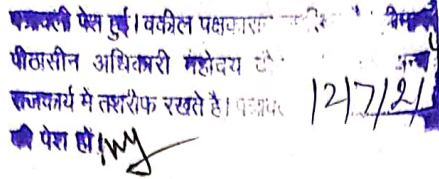 पत्रावली पेश हुई। वकील पक्षकारान
पीठासीन अधिकारी महोदय अन्य
राजकार्य मे तशरीफ रखते है। 12/7/21
को पेश हो।